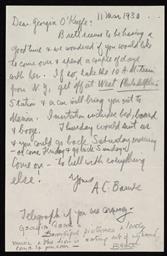 Dear Georgia O'Keeffe: 11 Mar 1930
Brett seems to be having a
good time & we wondered if you would like
to come over & spend a couple of days
with her. If so, take the 10 A.M. train
from N.Y., get off at West Philadelphia
Station & a car will bring you out to
Merion. Invitation includes bed, board
& booze. Thursday would suit us
& you could go back Saturday morning
or come Friday & go back Sunday
Come on - to hell with everything
else!
As ever
A.C. Barnes
Telegraph if you are coming.
Georgia
Beautiful pictures & lovely